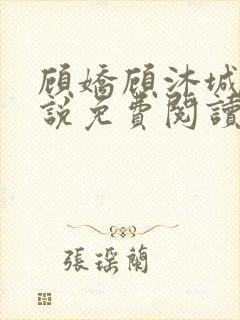 顾嬌顾沐城
說免費閱讀
張琛蘭